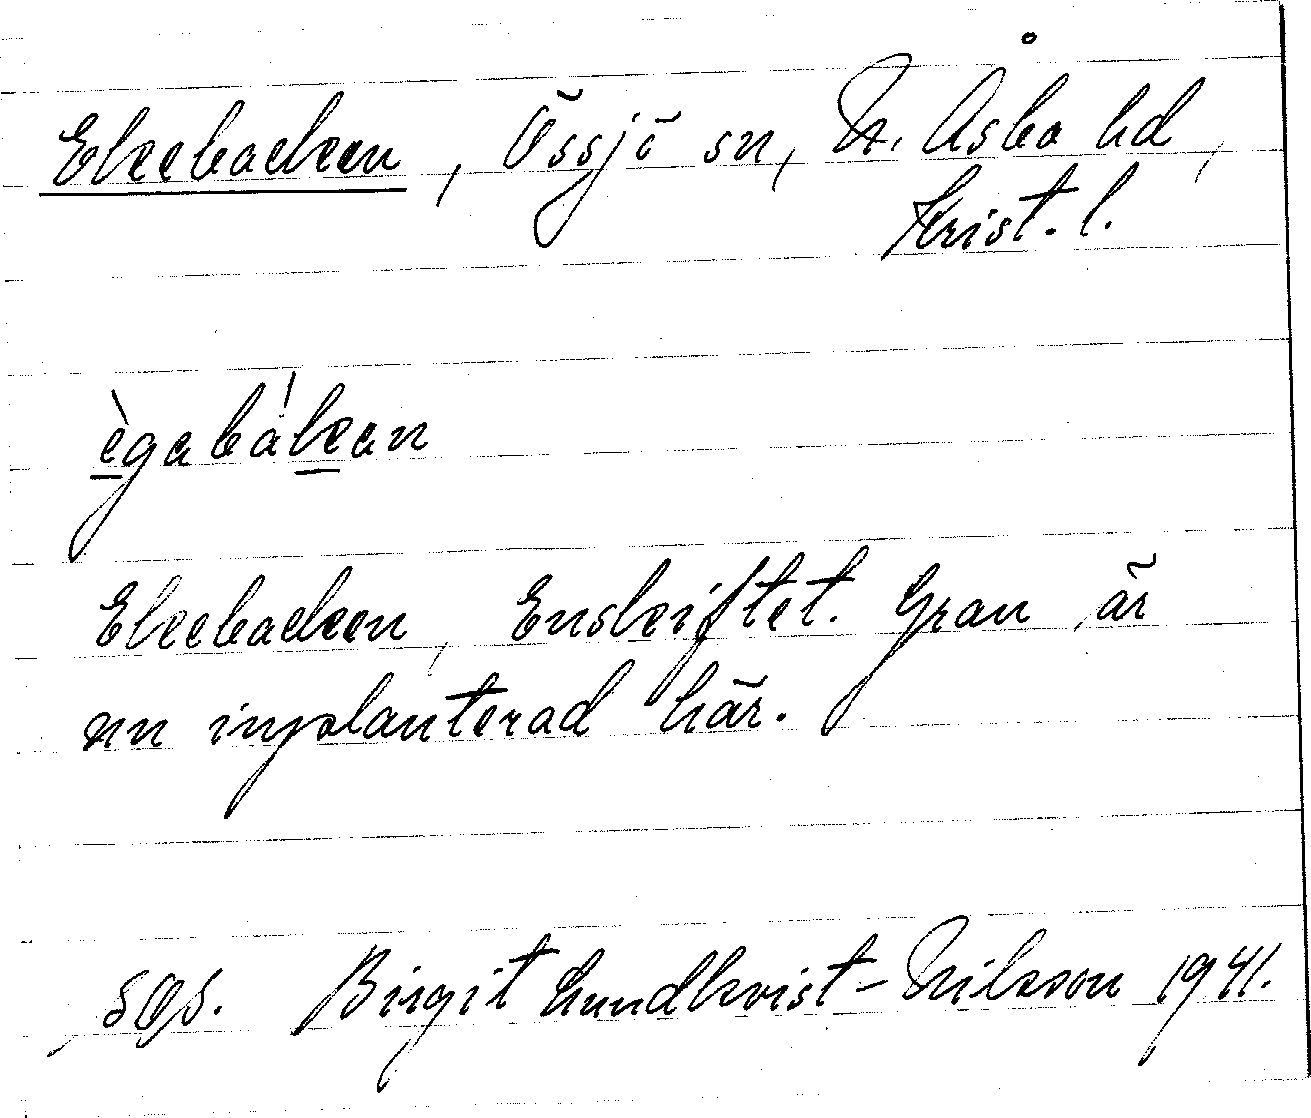 Ekebacken, Össjö sn, N. Åsbo hd,
Krist. l.
ègabákan
Ekebacken, Enskiftet. Gran är
nu inplanterad här.
sOs. Birgit Lundkvist-Nilsson 1941.